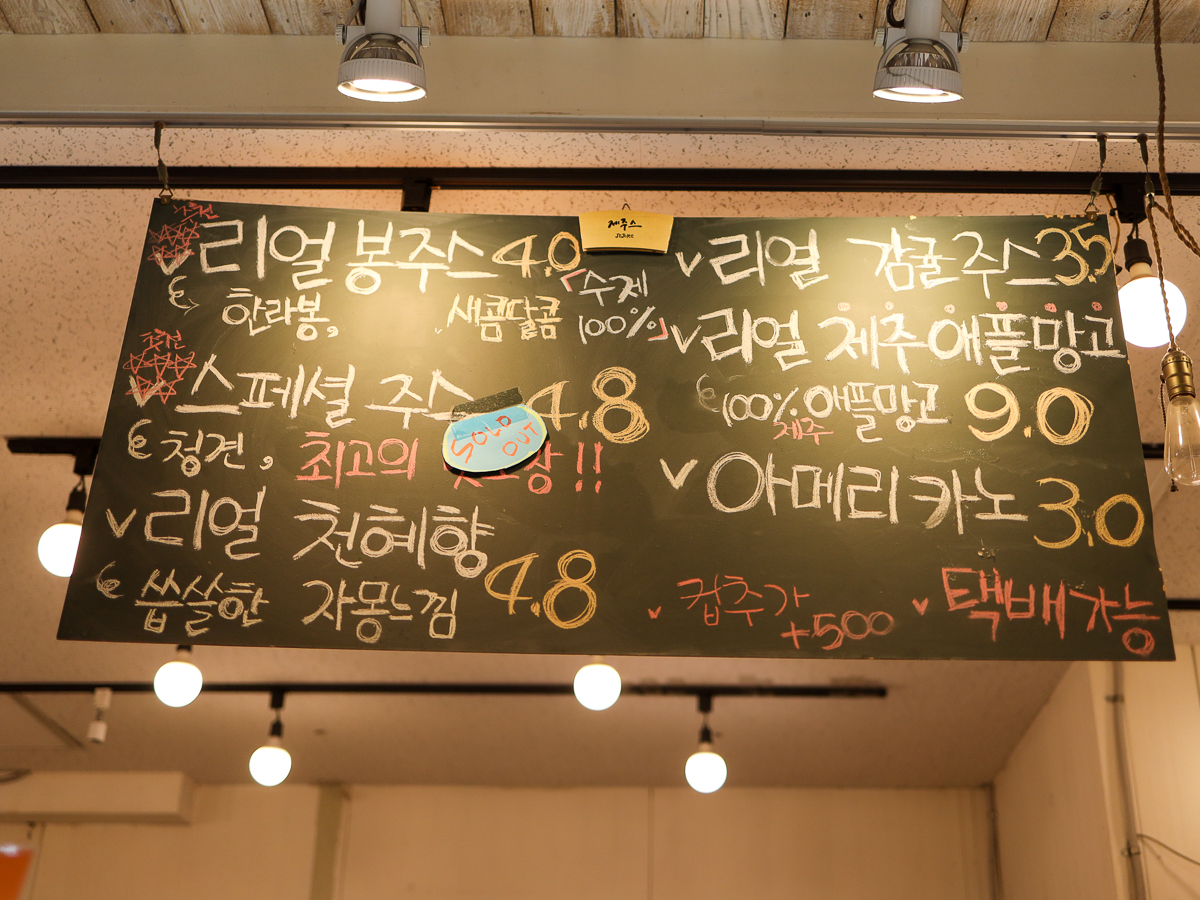 제주스
JEJUICE
추천
리얼 봉주스 4.0
한라봉, 새콤달콤
「수제
100%」
추천
스페셜 주스 4.8
SOLD
OUT
청견, 최고의 !!
리얼 천혜향
씁쓸한 자몽느낌 4.8
리얼 감귤주스 3.5
리얼 제주애플망고
100% 애플망고 9.0
제주
아메리카노 3.0
컵추가
+500
택배가능